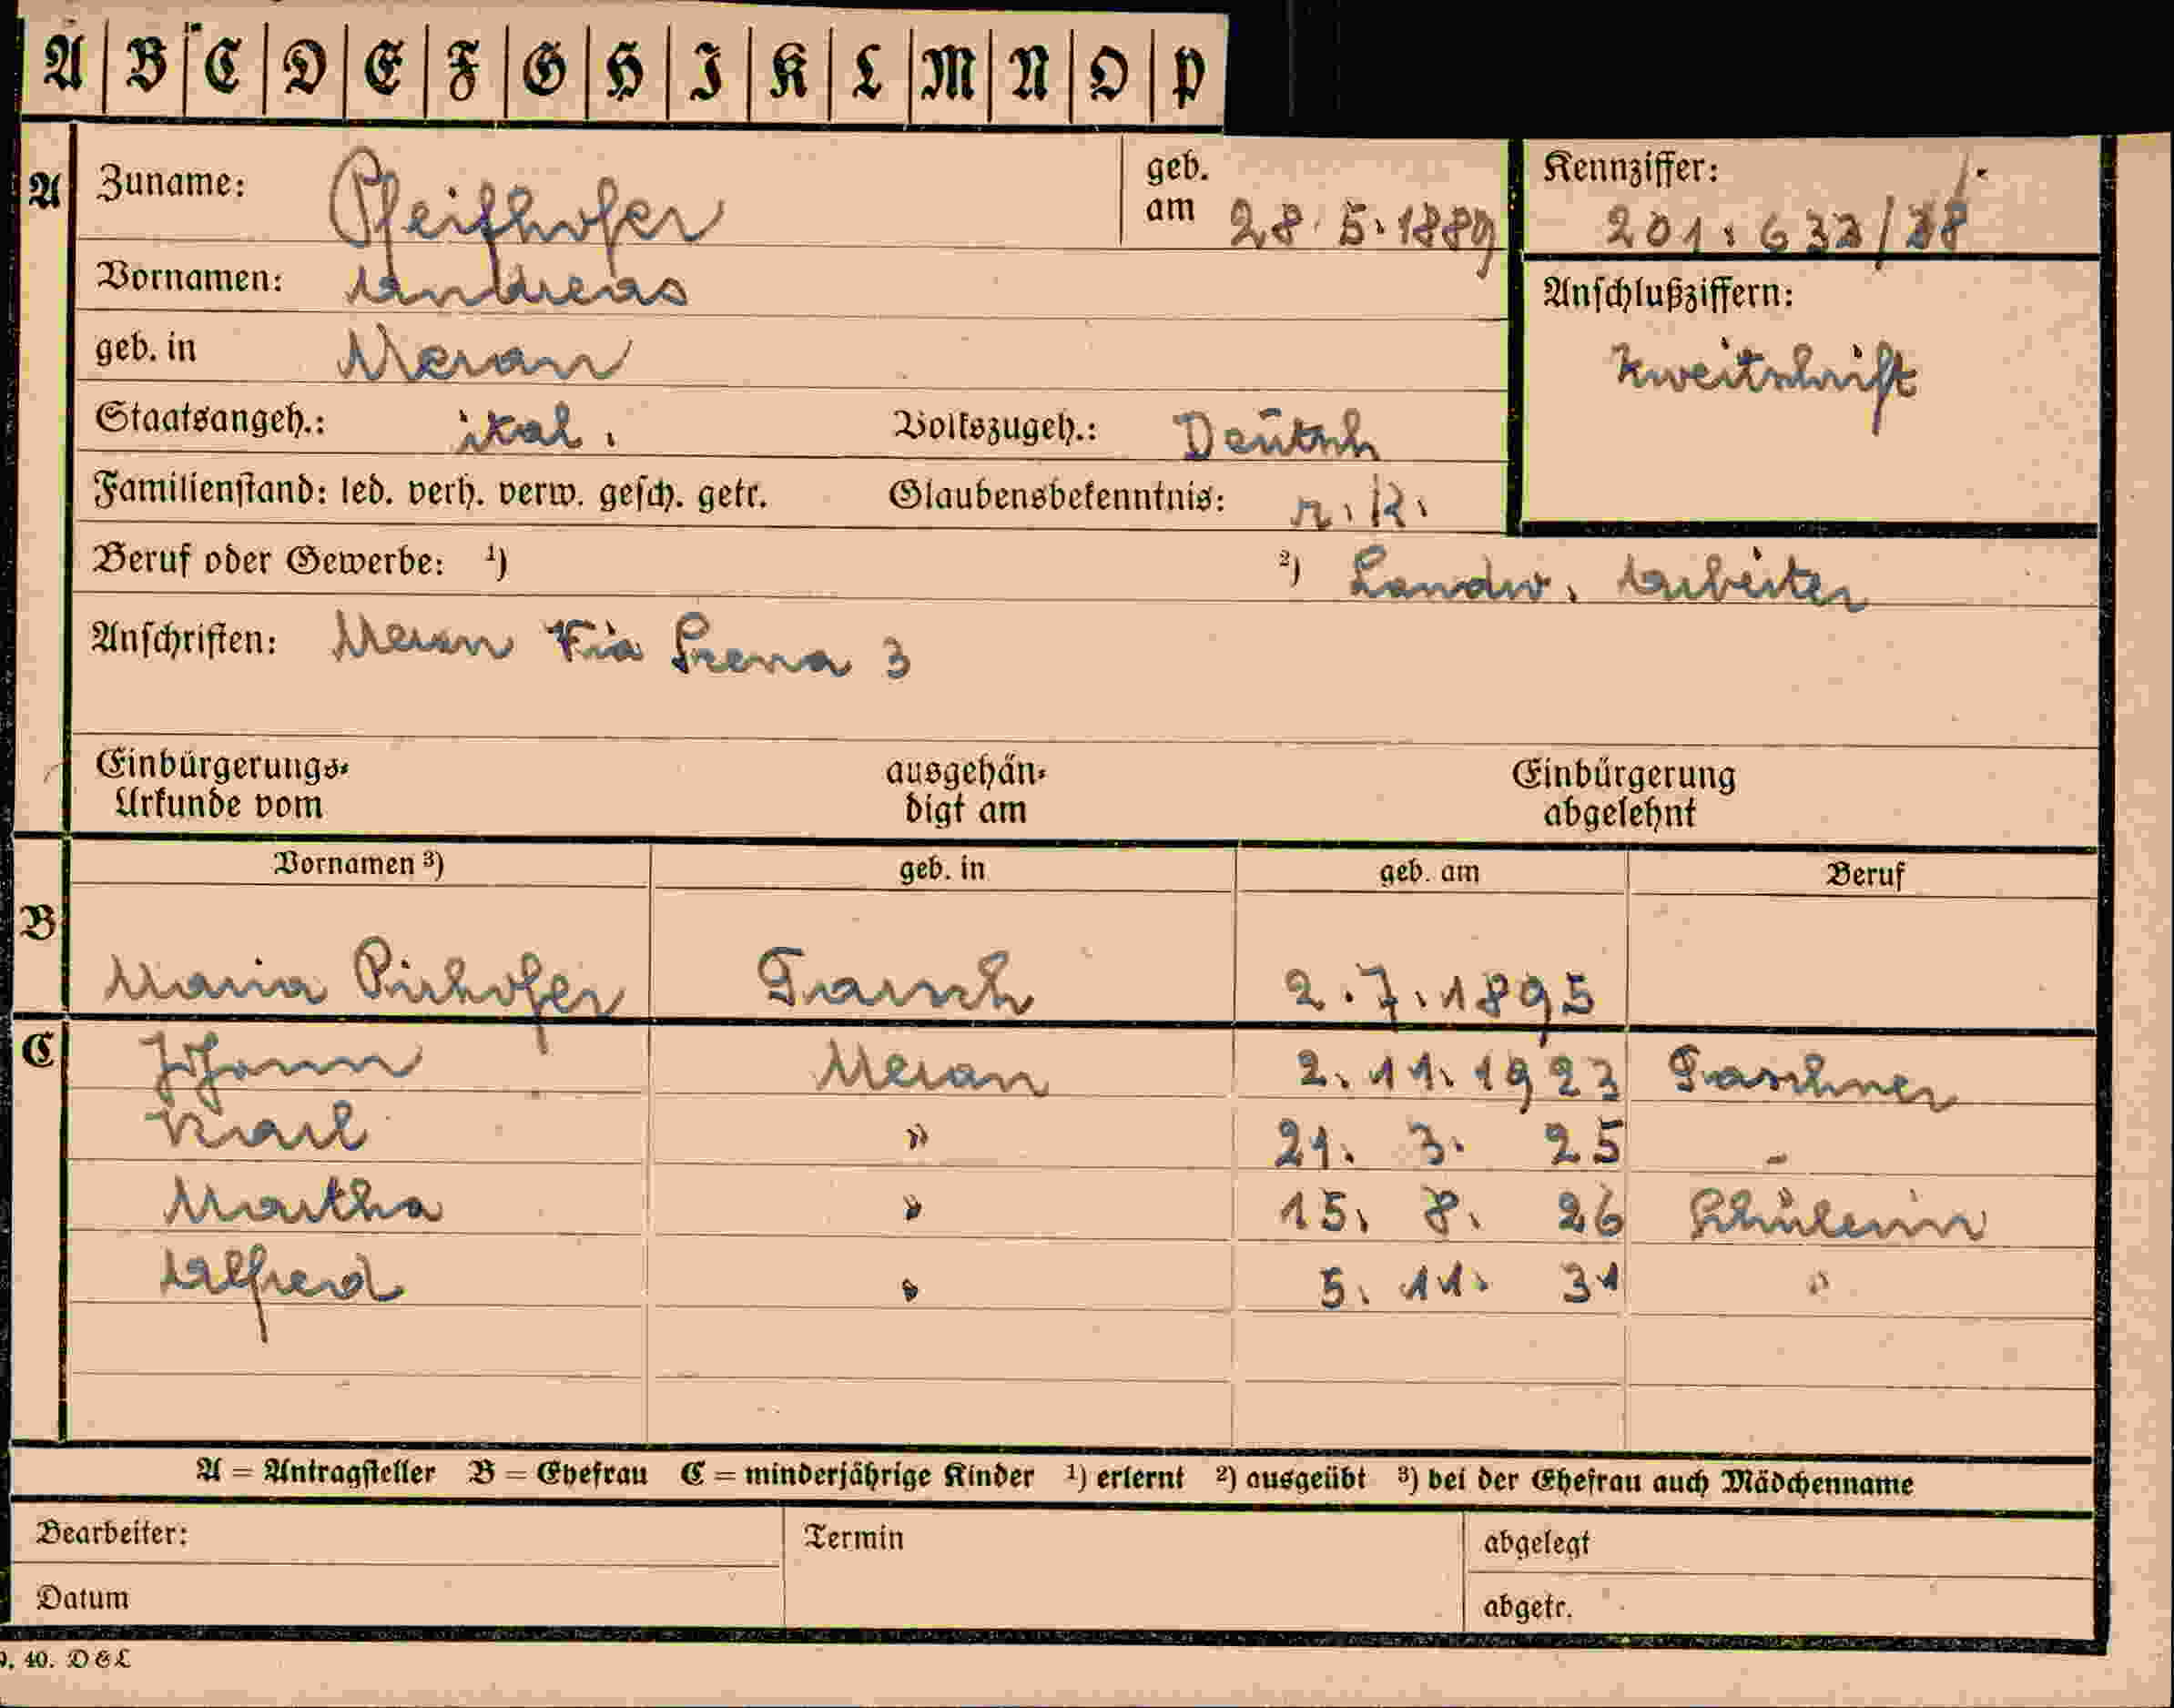 A B C D E F G H I K L M N O P
A Zuname: Pfeifhofer geb. am 28.5.1889 Kennziffer: 201.633/38
Vornamen: Andreas Anschlußziffern:
geb. in Meran Zweitschrift
Staatsangeh.: ital. Volkszugeh.: Deutsch
Familienstand: led. verh. verw. gesch. getr. Glaubensbekenntnis: r.k.
Beruf oder Gewerbe: ¹) ²) Landw. Arbeiter
Anschriften: Meran Via 3
Einbürgerungs- ausgehän- Einbürgerung
Urkunde vom digt am abgelehnt
Vornamen ³) geb. in geb. am Beruf
B
Maria Pirhofer Tarsch 2.7.1895
C Johann Meran 2.11.1923 Taschner
Karl " 21. 3. 25 -
Martha " 15. 8. 26 Schülerin
Alfred " 5. 11. 31 "
A = Antragsteller B = Ehefrau C = minderjährige Kinder ¹) erlernt ²) ausgeübt ³) bei der Ehefrau auch Mädchenname
Bearbeiter: Termin abgelegt
Datum abgetr.
9. 40. D&L